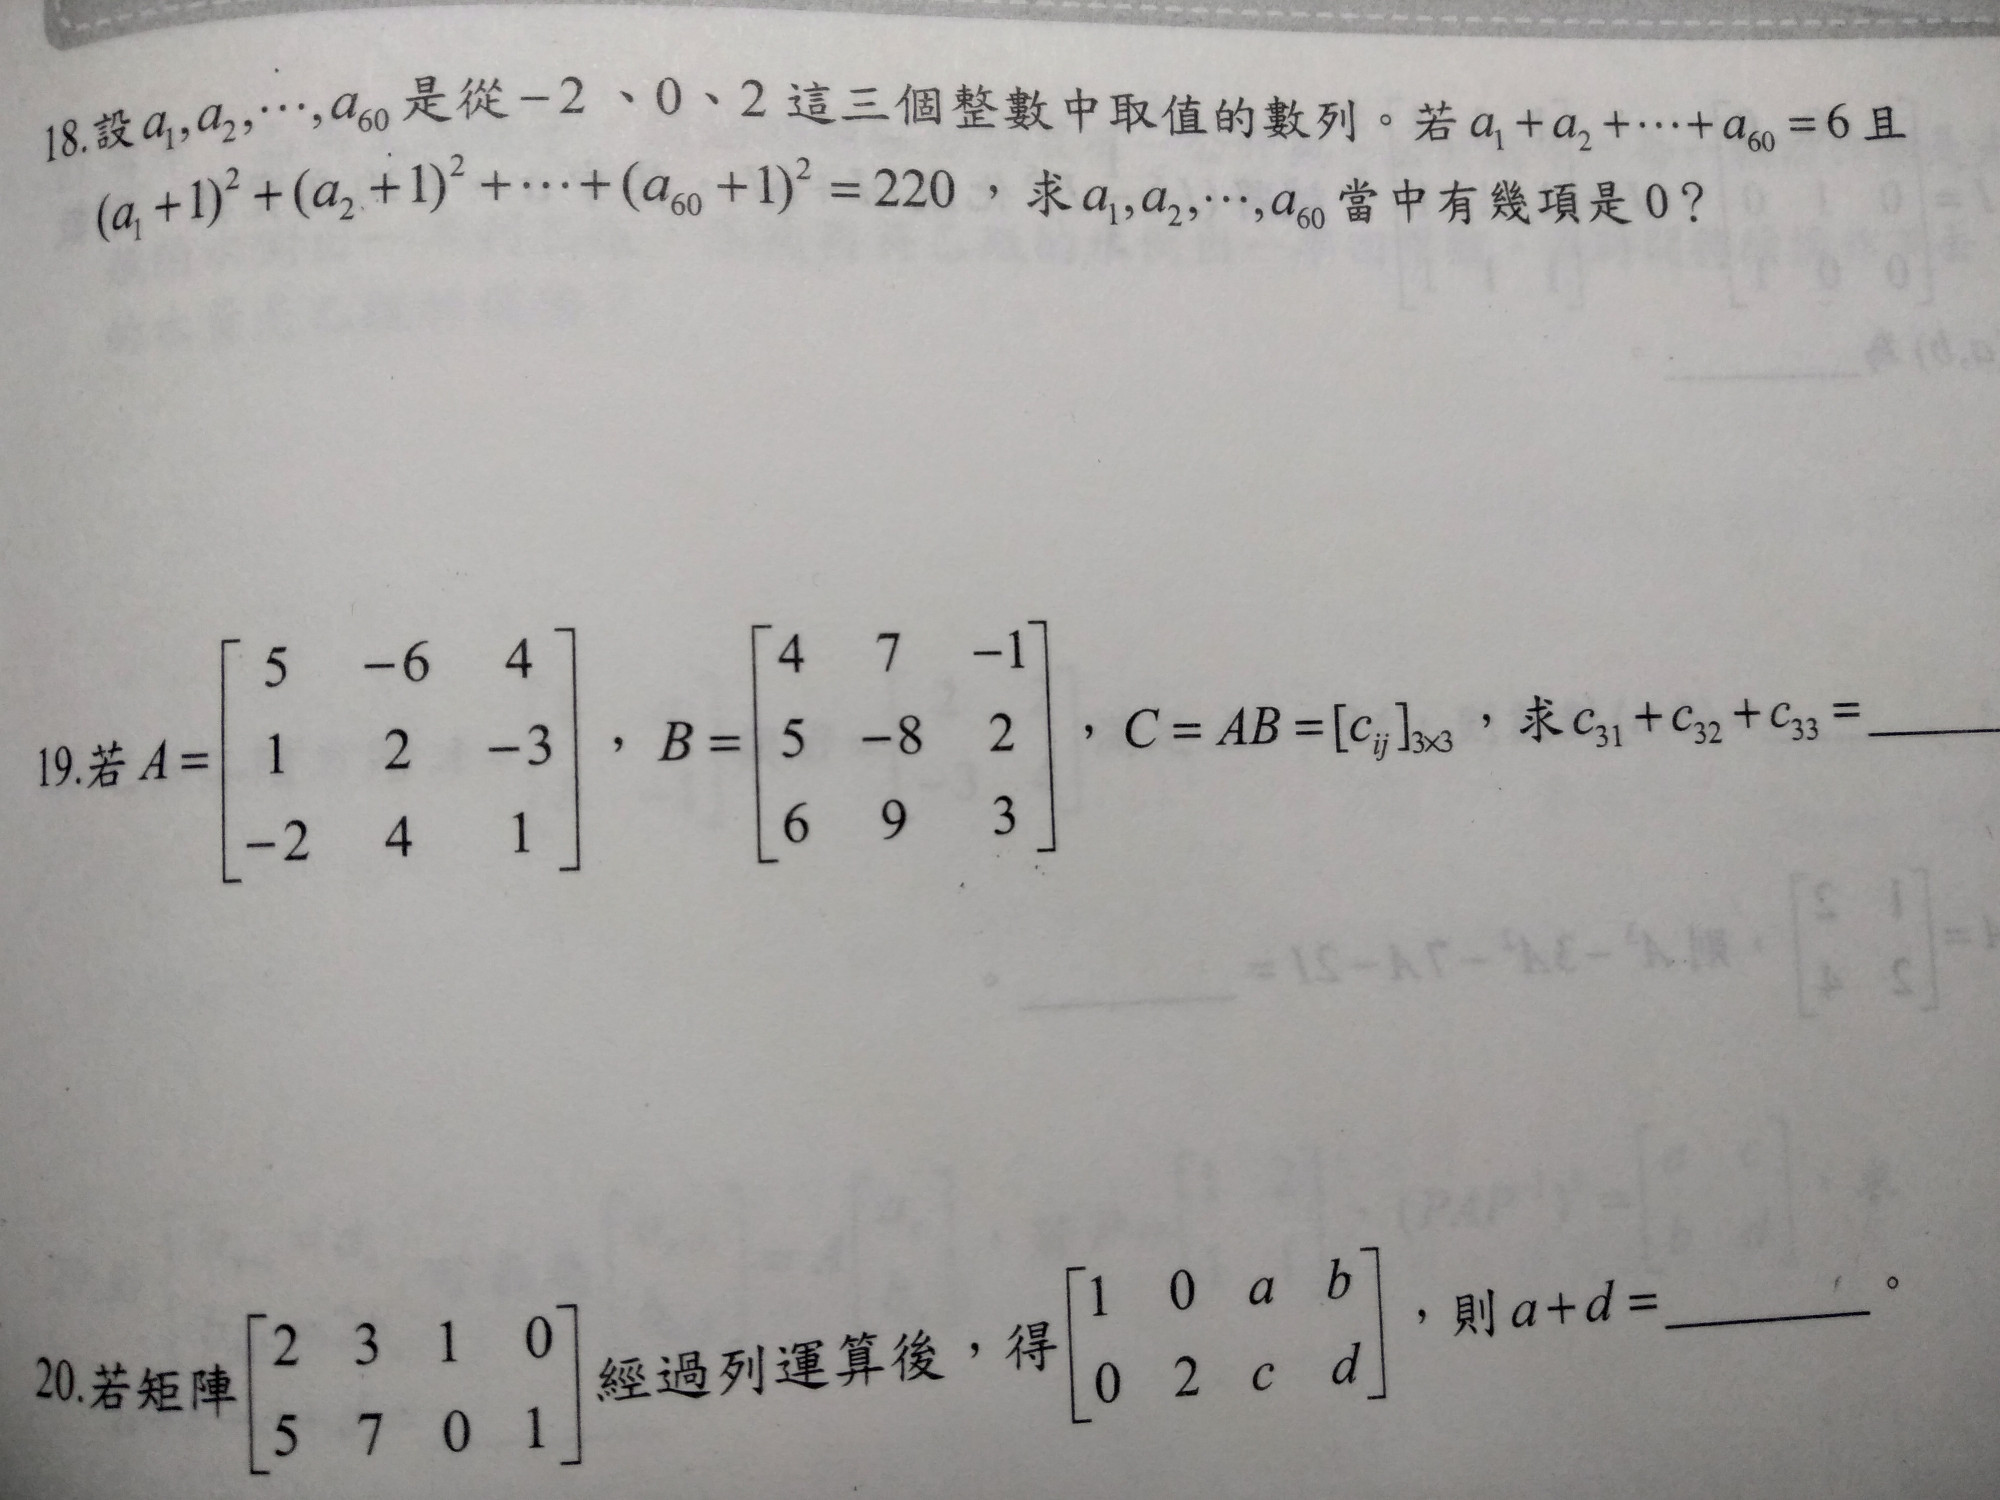 18.設a₁,a₂,⋯,a₆₀是從−2、0、2這三個整數中取值的數列。若a₁+a₂+⋯+a₆₀=6且
(a₁+1)²+(a₂+1)²+⋯+(a₆₀+1)²=220，求a₁,a₂,⋯,a₆₀當中有幾項是0？
19.若A=[5 −6 4; 1 2 −3; −2 4 1]，B=[4 7 −1; 5 −8 2; 6 9 3]，C=AB=[cᵢⱼ]₃ₓ₃，求c₃₁+c₃₂+c₃₃=____
20.若矩陣[2 3 1 0; 5 7 0 1]經過列運算後，得[1 0 a b; 0 2 c d]，則a+d=____。